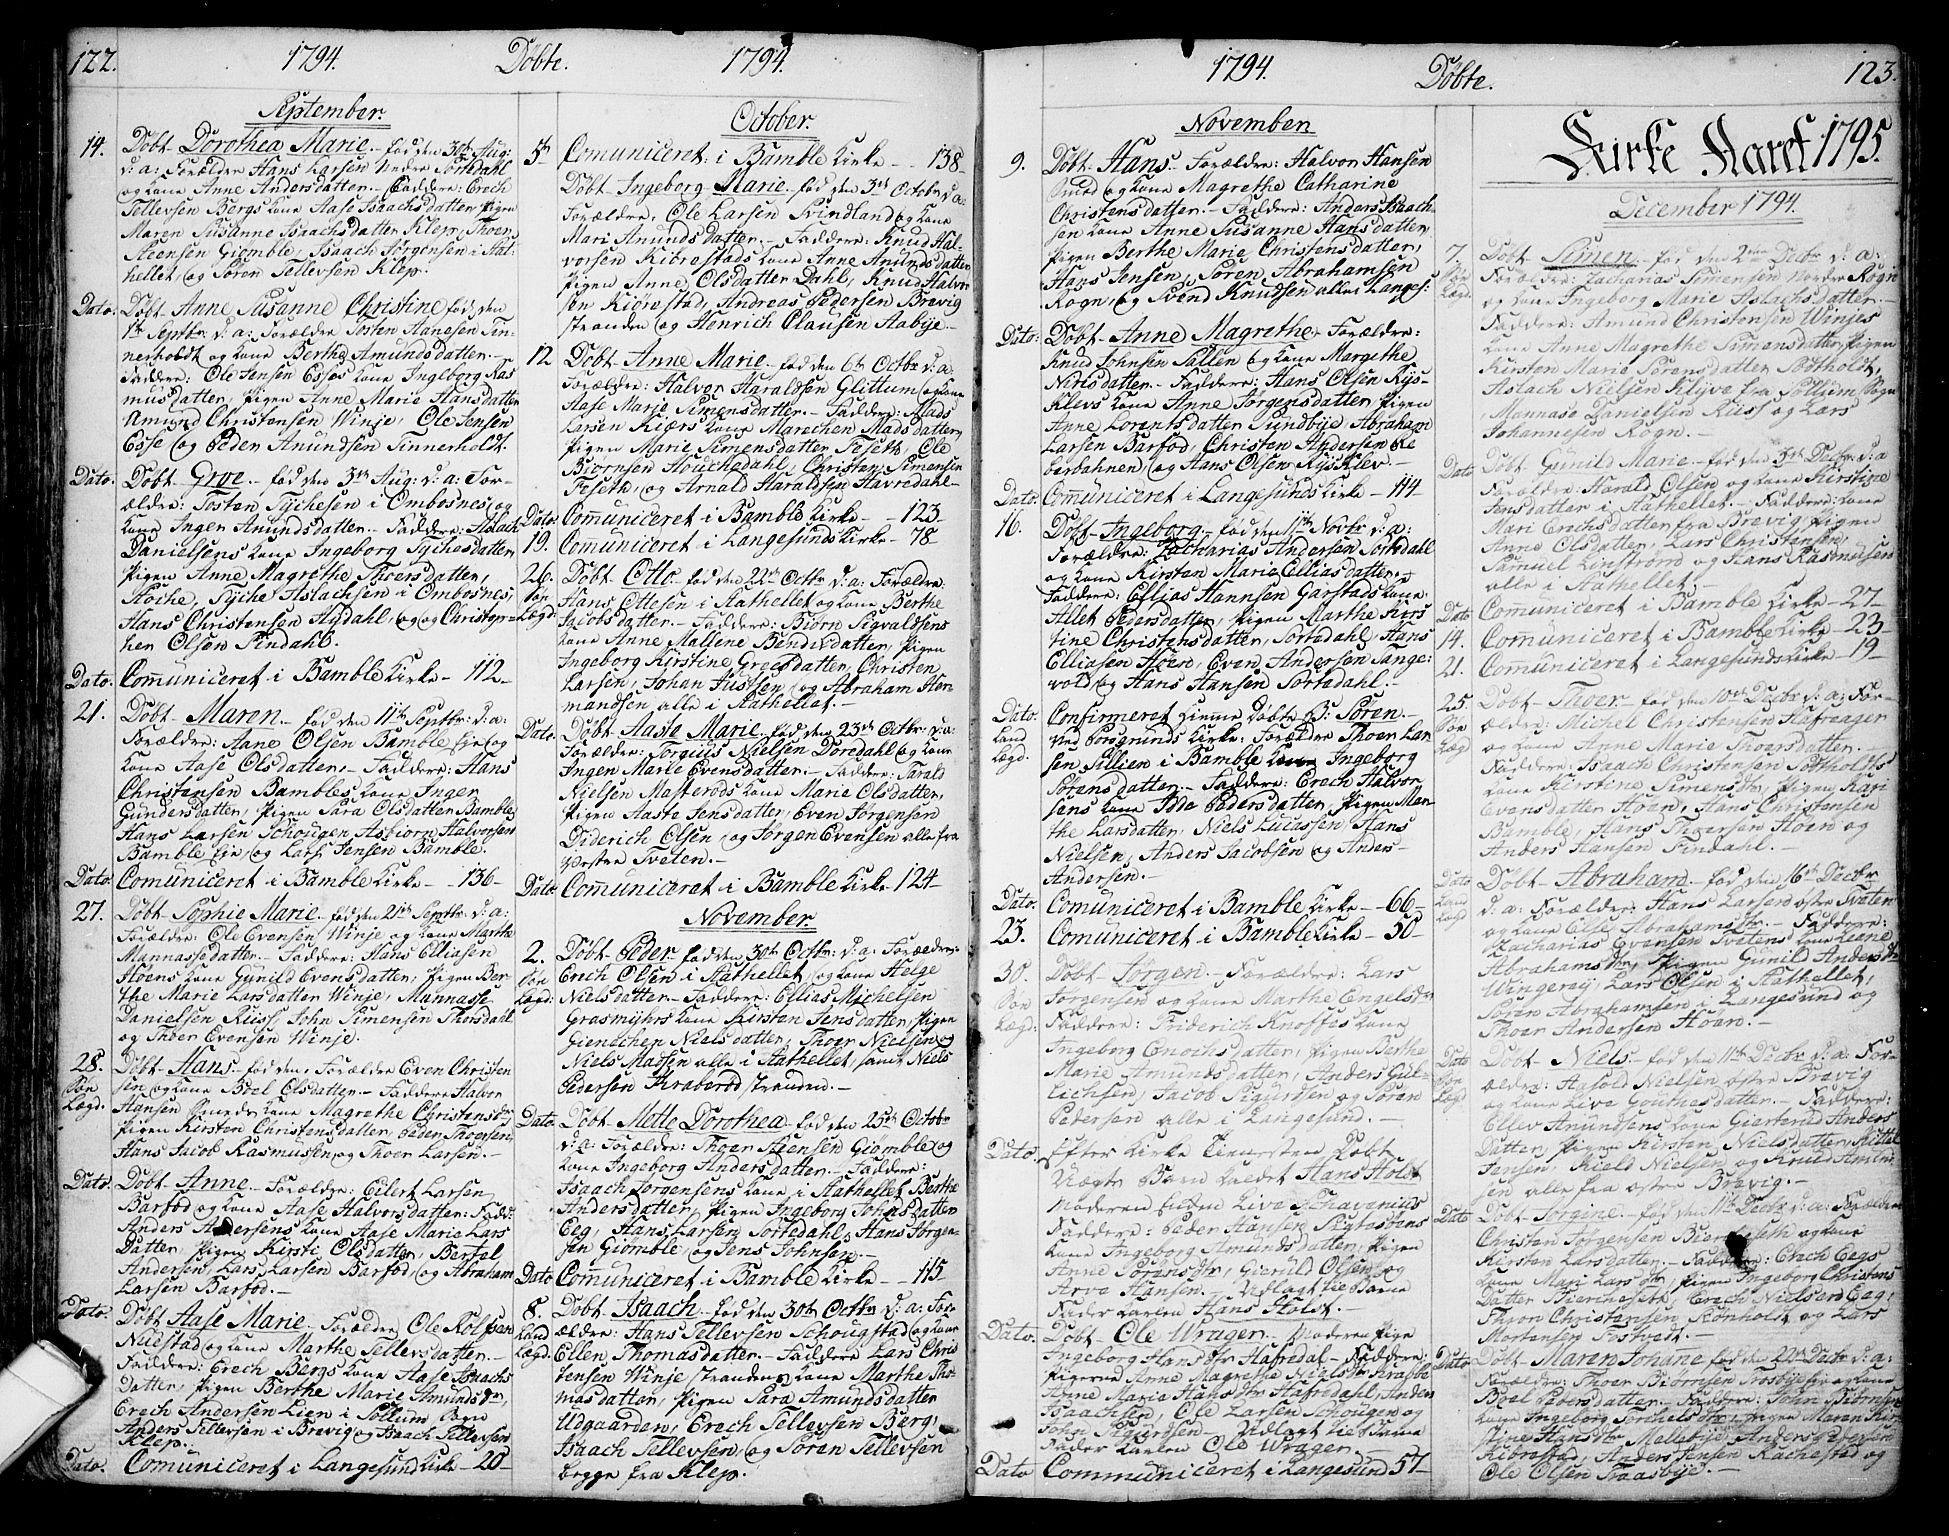 122. 1794. Döbte. 1794.
September.
14. Döbt Dorothea Marie fød den 30te Aug:
d: a: Forældre Hans Larsen Nedre Sortedahl
og kone Anne Andersdatter. Faddere: Erech
Tellevsen Bergs kone Aase Isaachsdatter, Pigen
Maren Susanne Isaachsdatter Klep, Thoer
Steensen Giømble, Isaach Jørgensen i Stat-
hellet og Søren Tellevsen Klep.
Dato. Döbt Anne Susanne Christine fød den
1te Septbr d: a: Forældre Tosten Hansen Tin-
nerholdt og kone Berthe Amundsdatter.
Faddere: Ole Jensen Esses kone Ingeborg Ras
musdatter, Pigen Anne Marie Hansdatter
Amund Christensen Winje, Ole Jensen
Esse og Peder Anundsen Tinnerholdt.
Dato. Döbt Groe fød den 3te Aug: d: a: For-
ældre: Tosten Tychesen i Ombosnes og
kone Inger Anundsdatter. Faddere: Aslach
Danielsens kone Ingeborg Tychesdatter
Pigen Anne Magrethe Thoersdatter,
Stoche, Tyche Aslachsen i Ombosnes,
Hans Christensen Hydahl, og Christopher-
her Olsen Findahl.
Dato: Comuniceret i Bamble Kirke - 112
21. Döbt Maren fød den 11te Septbr: d: a:
Forældre: Aane Olsen Bamble eje og
kone Aase Olsdatter. Faddere: Hans
Christensen Bambles kone Inger
Gundersdatter, Pigen Sara Olsdatter Bamble,
Hans Larsen Schougen Asbiørn Halvorsen
Bamble eje og Lars Jensen Bamble.
Dato: Comuniceret i Bamble Kirke - 136
27. Döbt Sophie Marie fød den 21te Septbr: d: a:
Forældre: Ole Evensen Winje og kone Marthe
Mannassedatter. Faddere: Hans Elliasen
Hoens kone Gunild Evensdatter, Pigen Ber-
the Marie Larsdatter Winje, Mannasse
Danielsen Riiss John Simensen Thorsdahl
og Thoer Evensen Winje.
28. Döbt Hans fød den, Forældre Even Christen
sen og kone Boel Olsdatter. Faddere Halvor
Hansen Smeds kone Magrethe Christensdtr
Pigen Kirsten Christensdatter, Peder Thoersen,
Hans Jacob Rasmusen og Thoer Larsen.
Dato: Döbt Anne Forældre: Eilert Larsen
Barfod og kone Aase Halvorsdatter: Fadd:
Anders Andersens kone Aase Marie Lars
Datter, Pigen Kirsti Olsdatter, Bertel
Andersen, Lars Larsen Barfod, og Abraham
Larsen Barfod.
Dato: Döbt Aase Marie Forældre Ole Rolfsen
Niestad og kone Marthe Tellevsdatter.
Faddere: Erech Bergs kone Aase Isaachs
Datter, Pigen Berthe Marie Amundsdtr,
Erech Andersen Lien i Sollum Sogn
Anders Tellevsen i Brevig og Isaach Tellevsen
Klep.
Dato. Comuniceret i Langesund Kirke - 20
October.
5te Comuniceret i Bamble Kirke - 138
Döbt Ingeborg Marie fød den 3te Octobr d: a:
Forældre, Ole Larsen Svindland og kone
Mari Anundsdatter. Faddere: Knud Hal-
vorsen Kiørestads kone Anne Anundsdatter
Pigen Anne Olsdatter Dahl, Knud Halvor
sen Kiørestad, Andreas Pedersen Brevig
stranden og Henrich Clausen Aabÿe.
12. Döbt Anne Marie fød den 6te Octbr d: a:
Forældre: Halvor Haraldsen Glittum og kone
Aase Marie Simensdatter. Faddere: Mads
Larsen Kiærs kone Marechen Madsdatter,
Pigen Marie Simensdatter Feseth, Ole
Biørnsen Houchedahl, Christen Simensen
Feseth, og Arnold Haraldsen Havredahl.
Dato: Comuniceret i Bamble Kirke - 123
19. Comuniceret i Langesunds Kirke - 78
26. Döbt Otto fød den 22te Octbr d: a: Forældre
Hans Ottesen i Stathellet og kone Berthe
Jacobsdatter. Faddere: Biørn Sigvaldsens
kone Anne Mallene Bendixdatter, Pigen
Ingeborg Kirstine Gregsdatter, Christen
Larsen, Johan Jussen og Abraham Her
mandsen alle i Stathellet.
Dato. Döbt Aaste Marie fød den 23te Octbr d: a:
Forældre: Torgiuus Nielsen Dørdahl og kone
Ingen Marie Evensdatter. Faddere: Tarald
Nielsen Masterøds kone Marie Olsdatter,
Pigen Aaste Jensdatter, Even Jørgensen
Diderich Olsen og Jørgen Evensen alle fra
Vestre Tveten.
Dato: Comuniceret i Bamble Kirke 124
November.
2. Döbt Peder fød den 30te Octbr: d: a: Forældre:
Erech Olsen i Stathellet og kone Helge
Nielsdatter. Faddere: Ellias Michelsen
Grasmÿhrs kone Kirsten Jensdatter, Pigen
Giendchen Nielsdatter, Thoer Nielsen og
Niels Madsen alle i Stathellet, samt Niels
Pedersen Kraberød stranden.
Dato: Döbt Mette Dorothea fød den 25te Octobr
d: a: Forældre: Thoer Steensen Giømble og
kone Ingeborg Andersdatter. Faddere:
Isaach Jørgensens kone i Stathellet Berthe
Andersdatter, Pigen Ingeborg Johnsdatter
Eeg, Hans Larsen Sortedahl, Hans Jørgen-
sen Giømble og Jens Johnsen.
Dato Comuniceret i Bamble Kirke - 115
8. Döbt Isaach fød den 30te Octbr: d: a: For-
ældre: Hans Tellevsen Schougstad og kone
Ellen Thomasdatter. Faddere Lars Chris
tensen Winje strandens kone Marthe Tho-
masdatter, Pigen Sara Amundsdatter
Udgaarden, Erech Tellevsen Berg,
Isaach Tellevsen og Søren Tellevsen
begge fra Klep.
1794. Döbte. 123.
November
9. Döbt Hans Forældre: Halvor Hansen
Smed og kone Magrethe Catharine
Christensdatter. Faddere: Anders Isaach-
sen kone Anne Susanne Hansdatter,
Pigen Berthe Marie Christensdatter,
Hans Jensen, Søren Abrahamsen
Rogn, og Svend Knudsen alle i Langes:
Dato: Döbt Anne Magrethe Forældre:
Knud Johnsen Salten og kone Margethe
Nirisdatter. Faddere: Hans Olsen Rÿs-
Klevs kone Anne Jørgensdatter Pigen
Anne Lorentsdatter Sundbÿe, Abraham
Larsen Barfod, Christen Andersen Re
berbahnen og Hans Olsen RÿsKlev.
Dato: Comuniceret i Langesunds Kirke - 114
16. Döbt Ingeborg fød den 11te Novbr: d: a:
Forældre: Zacharias Andersen Sortedahl
og kone Kirsten Marie Elliasdatter.
Faddere: Ellias Hannsen Garstads kone
Allet Pedersdatter, Pigen Marthe Kirs
tine Christensdatter, Sortedahl, Hans
Elliasen Hoen, Even Andersen Tange:
vold og Hans Hansen Sortedahl.
Dato: Confirmeret hiemme Døbte B: Søren.
Land Lægd. Ved Porsgrunds Kirke: Forældre Thoer Lar
sen Sillien i Bamble kone Ingeborg
Sørensdatter. Faddere: Erech Halvor
sens kone Idde Pedersdatter, Pigen Mar
the Larsdatter, Niels Lucassen, Hans
Nielsen, Anders Jacobsen og Anders
Andersen.
Dato: Comuniceret i Bamble Kirke - 66
23. Comuniceret i Bamble Kirke - 50
30. Döbt Jørgen Forældre: Lars
Jørgensen og kone Marthe Engelsdtr
Faddere: Friderich Knoffes kone
Ingeborg Enochsdatter, Pigen Berthe
Marie Amundsdatter, Anders Gul-
lichsen, Jacob Sigurdsen og Søren
Pedersen alle i Langesund.
Dato. Efter Kirke Tienesten Døbt
Uægte Barn kaldet Hans Holst
Moderen Enken Live Schavenius
Faddere: Peder Hansen Sigtesøens
kone Ingeborg Amundsdatter, Pigen
Anne Sørensdtr, Gierud Olsen og
Arve Hansen. Udlagt til Barne
Fader Karlen Hans Holst.
Dato: Döbt Ole Wrager. Moderen Pige
Ingeborg Hansdtr Hafredal. Faddere:
Pigerne Anne Magrethe Nielsdtr
Anne Marie Hansdtr Hafredahl, Anders
Isaachsen, Ole Larsen Schougen og
John Sigurdsen. Udlagt til Barne
Fader Karlen Ole Wrager.
Dato Communiceret i Langesund 57
Kirke Aaret 1795.
December 1794.
7. Döbt Simen fød den 2den Decbr d: a:
Forældre: Zacharias Simensen Nordre Rogn
og kone Ingeborg Marie Aslachsdatter.
Faddere: Amund Christensen Winjes
kone Anne Magrethe Simensdatter, Pigen
Kirsten Marie Sørensdatter Pottholdt,
Aslach Nielsen Klÿve fra Sollum Sogn
Mannase Danielsen Riiss og Lars
Johannesen Rogn.
Dato Döbt Gunild Marie fød den 3te Decbr: d: a
Forældre: Harald Olsen og kone Kirstine
Jensdatter i Stathellet. Faddere: kone
Mari Erechsdatter fra Brevig, Pigen
Anne Olsdatter, Lars Christensen,
Samuel Linstrøm og Hans Rasmusen
alle i Stathellet.
Dato Comuniceret i Bamble Kirke - 27
14. Comuniceret i Bamble Kirke - 23
21. Comuniceret i Langesunds Kirke - 19
25. Döbt Thoer fød den 10de Decbr d: a: For-
ældre: Michel Christensen Hafreager
og kone Anne Marie Thoersdatter.
Faddere: Isaach Christensen Pottholdts
kone Kirstine Simensdtr, Pigen Kari
Evensdatter Hoen, Hans Christensen
Bamble, Hans Thoersen Hoen og
Anders Hansen Findahl.
Dato Döbt Abraham fød den 16te Decbr
d: a: Forældre: Hans Larsen østre Tveten
og kone Else Abrahamsdtr. Faddere:
Zacharias Evensen Tvetens kone Leane
Abrahamsdtr, Pigen Gunild Andersdtr
Wingerej, Lars Olsen i Stathellet,
Søren Abrahamsen i Langesund og
Thoer Andersen Hoen.
Dato Döbt Niels fød den 11te Decbr d: a: For-
ældre: Aasold Nielsen østre Brevig
og kone Live Gouthesdatter. Faddere:
Ellev Anundsens kone Giertrud Anders
Datter, Pigen Kirsten Nielsdatter, Kittel
Jensen, Kield Nielsen og Knud Amund
sen alle fra østre Brevig.
Dato Döbt Jørgine fød den 11te Decbr d: a: Forældre
Christen Jørgensen Biercheseth og kone
Kirsten Larsdatter. Faddere: Erech Eegs
kone Mari Larsdtr, Pigen Ingeborg Christens
Datter Biercheseth, Erech Nielsen Eeg,
Thron Christensen Stønholdt og Lars
Mortensen Tostvedt.
Dato Döbt Maren Johanne fød den 22de Decbr d: a:
Forældre: Thoer Biørnsen Trosbÿe og kone
Boel Pedersdatter. Faddere: John Biørnsens
kone Ingeborg Torchelsdtr, Pigen Maren Kir
stine Hansdtr Mellebÿe, Anders Pedersen
Kiørestad, Anders Jensen Rachestad og
Ole Olsen Traasbÿe.